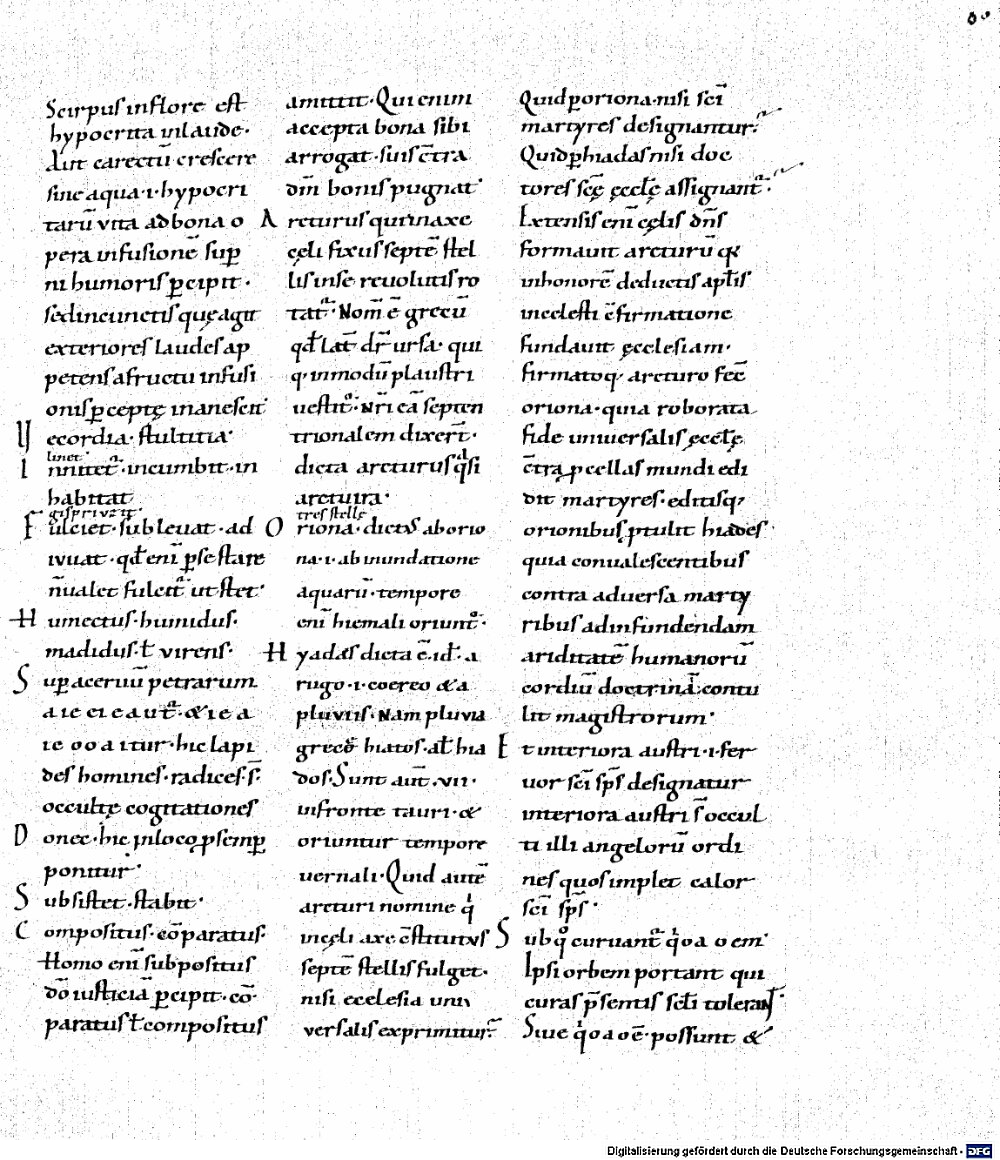 Scirpus inflore est
hypocrita inlaude·
Aut carectū crescere
sine aqua·ı·hypocri
tarū vita adbona o
pera infusionē sup̄
ni humoris p̄cipit·
sedincunctis quęagit
exteriores laudes ap
petens afructu infusi
onis p̄ceptę inanescit
Vecordia· stultitia·
linet·
Innitet̄·incumbit·in
habitat
gispriuzit·
Fulciet·subleuat·ad
iuuat·qđ enī p̄se stare
n̄ualet fulcit̄ ut stet·
Humectus·humidus·
madidus·ł virens·
Sup̄ aceruū petrarum
hic lapi
des homines·radices·s̄·
occultę cogitationes
Donec·hic inloco p̄semp̄
ponitur·
Subsistet·stabit·
Compositus·cōparatus·
Homo enī subpositus
dō iusticiā p̄cipit·cō·
paratus ł compositus
amittit·Qui enim
accepta bona sibi
arrogat·suis c̄tra
dm̄ bonis pugnat·
Arcturus qui inaxe
cęli fixus septē stel
lis inse reuolutis ro
tat̄·Nom̄ ē grecū
qđ lat̄ dr̄ ursa· qui
q·inmodū plaustri
uertit̄·nr̄i eā septen
trionalem dixer̄t·
dicta arcturus q̄si
arctuira·
tres stellę
Oriona·dictus aborio
na·ı·ab inundatione
aquarū·tempore
enī hiemali oriunt̄·
Hyadas dicta ē·id·a
rugo·ı·coereo &a
pluviis·Nam pluvia
grecę hiatos·at̄ hia
dos·Sunt aūt·vii·
infronte tauri·&
oriuntur tempore
uernali·Quid autē
arcturi nomine q̇
incęli axe c̄stitutus
septē stellis fulget·
nisi ecclesia uni
versalis exprimitur?
Quid p̄ oriona·nisi sc̄i
martyres designantur?
Quid p̄ hiadas nisi doc
tores sc̄ę ęccłę assignant̄?
Extensis enī cęlis dn̄s
formauit arcturū q·
inhonorē deductis apłis
incelesti c̄firmatione
fundauit ęcclesiam·
firmatoq· arcturo fec̄
oriona·quia roborata
fide uniuersalis ęccłę
c̄tra p̄cellas mundi edi
dit martyres·editisq·
orionibus p̄tulit hiades·
quia conualescentibus
contra aduersa marty
ribus ad infundendam
ariditatē humanorū
cordiū doctrinā contu
lit magistrorum·
Et interiora austri·ı·fer
uor sc̄i sp̄s designatur
interiora austri s̄ occul
ti illi angelorū ordi
nes quos implet calor
sc̄i sp̄s·
Sub q̊ curuant̄
Ipsi orbem portant qui
curas p̄sentis scłi tolerant·
Siue possunt &
Digitalisierung gefördert durch die Deutsche Forschungsgemeinschaft - DFG